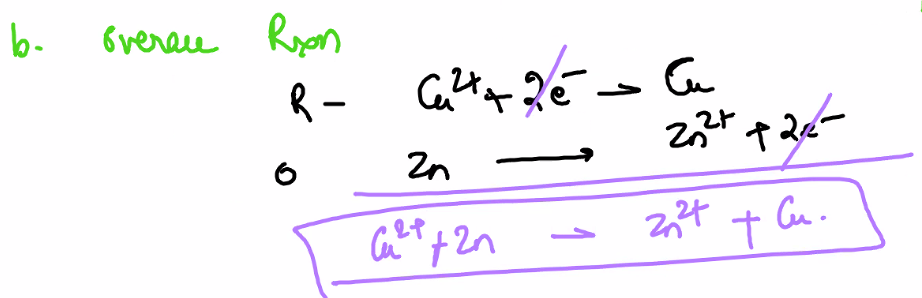 b. Overall Rxn
R - Cu²⁺ + 2e⁻ → Cu
O Zn → Zn²⁺ + 2e⁻
Cu²⁺ + Zn → Zn²⁺ + Cu.